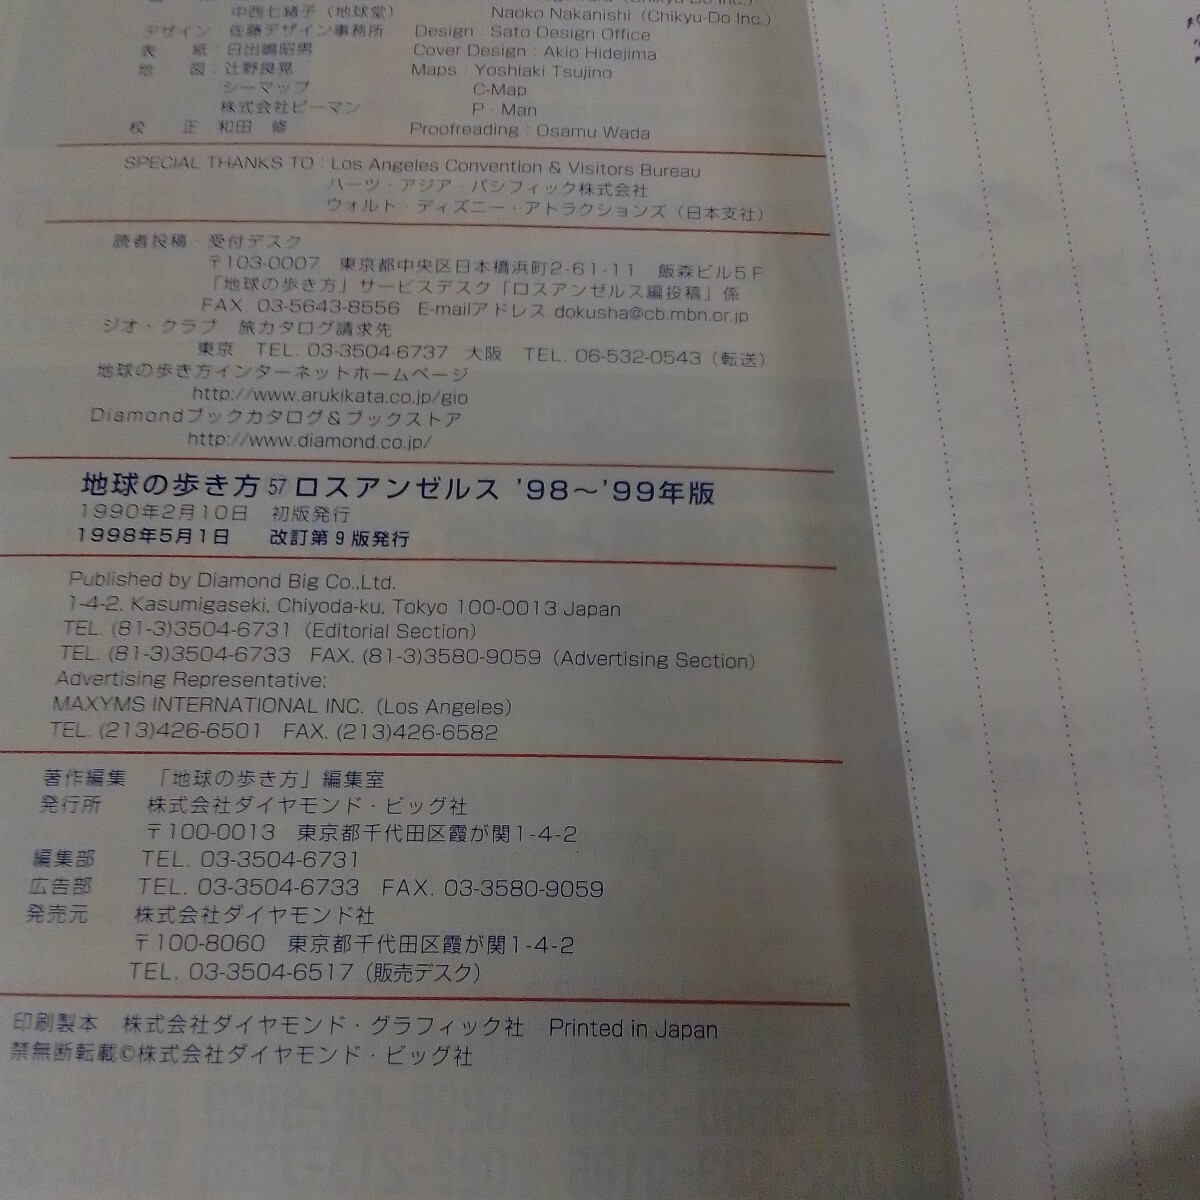 中西七緒子（地球堂）　Naoko Nakanishi (Chikyu-Do Inc.)
デザイン：佐藤デザイン事務所　Design : Sato Design Office
表　紙：日出嶋昭男　Cover Design : Akio Hidejima
地　図：辻野良晃　Maps : Yoshiaki Tsujino
シーマップ　C-Map
株式会社ピーマン　P・Man
校　正：和田　修　Proofreading : Osamu Wada
SPECIAL THANKS TO : Los Angeles Convention & Visitors Bureau
ハーツ・アジア・パシフィック株式会社
ウォルト・ディズニー・アトラクションズ（日本支社）
読者投稿・受付デスク
〒103-0007　東京都中央区日本橋浜町2-61-11　飯森ビル5F
「地球の歩き方」サービスデスク「ロスアンゼルス編投稿」係
FAX. 03-5643-8556　E-mailアドレス dokusha@cb.mbn.or.jp
ジオ・クラブ　旅カタログ請求先
東京　TEL. 03-3504-6737　大阪　TEL. 06-532-0543（転送）
地球の歩き方インターネットホームページ
http://www.arukikata.co.jp/gio
Diamondブックカタログ＆ブックストア
http://www.diamond.co.jp/
地球の歩き方 57 ロスアンゼルス ’98～’99年版
1990年2月10日　初版発行
1998年5月1日　改訂第9版発行
Published by Diamond Big Co.,Ltd.
1-4-2, Kasumigaseki, Chiyoda-ku, Tokyo 100-0013 Japan
TEL. (81-3)3504-6731 (Editorial Section)
TEL. (81-3)3504-6733　FAX. (81-3)3580-9059 (Advertising Section)
Advertising Representative:
MAXYMS INTERNATIONAL INC. (Los Angeles)
TEL. (213)426-6501　FAX. (213)426-6582
著作編集　「地球の歩き方」編集室
発行所　株式会社ダイヤモンド・ビッグ社
〒100-0013　東京都千代田区霞が関1-4-2
編集部　TEL. 03-3504-6731
広告部　TEL. 03-3504-6733　FAX. 03-3580-9059
発売元　株式会社ダイヤモンド社
〒100-8060　東京都千代田区霞が関1-4-2
TEL. 03-3504-6517（販売デスク）
印刷製本　株式会社ダイヤモンド・グラフィック社　Printed in Japan
禁無断転載©株式会社ダイヤモンド・ビッグ社